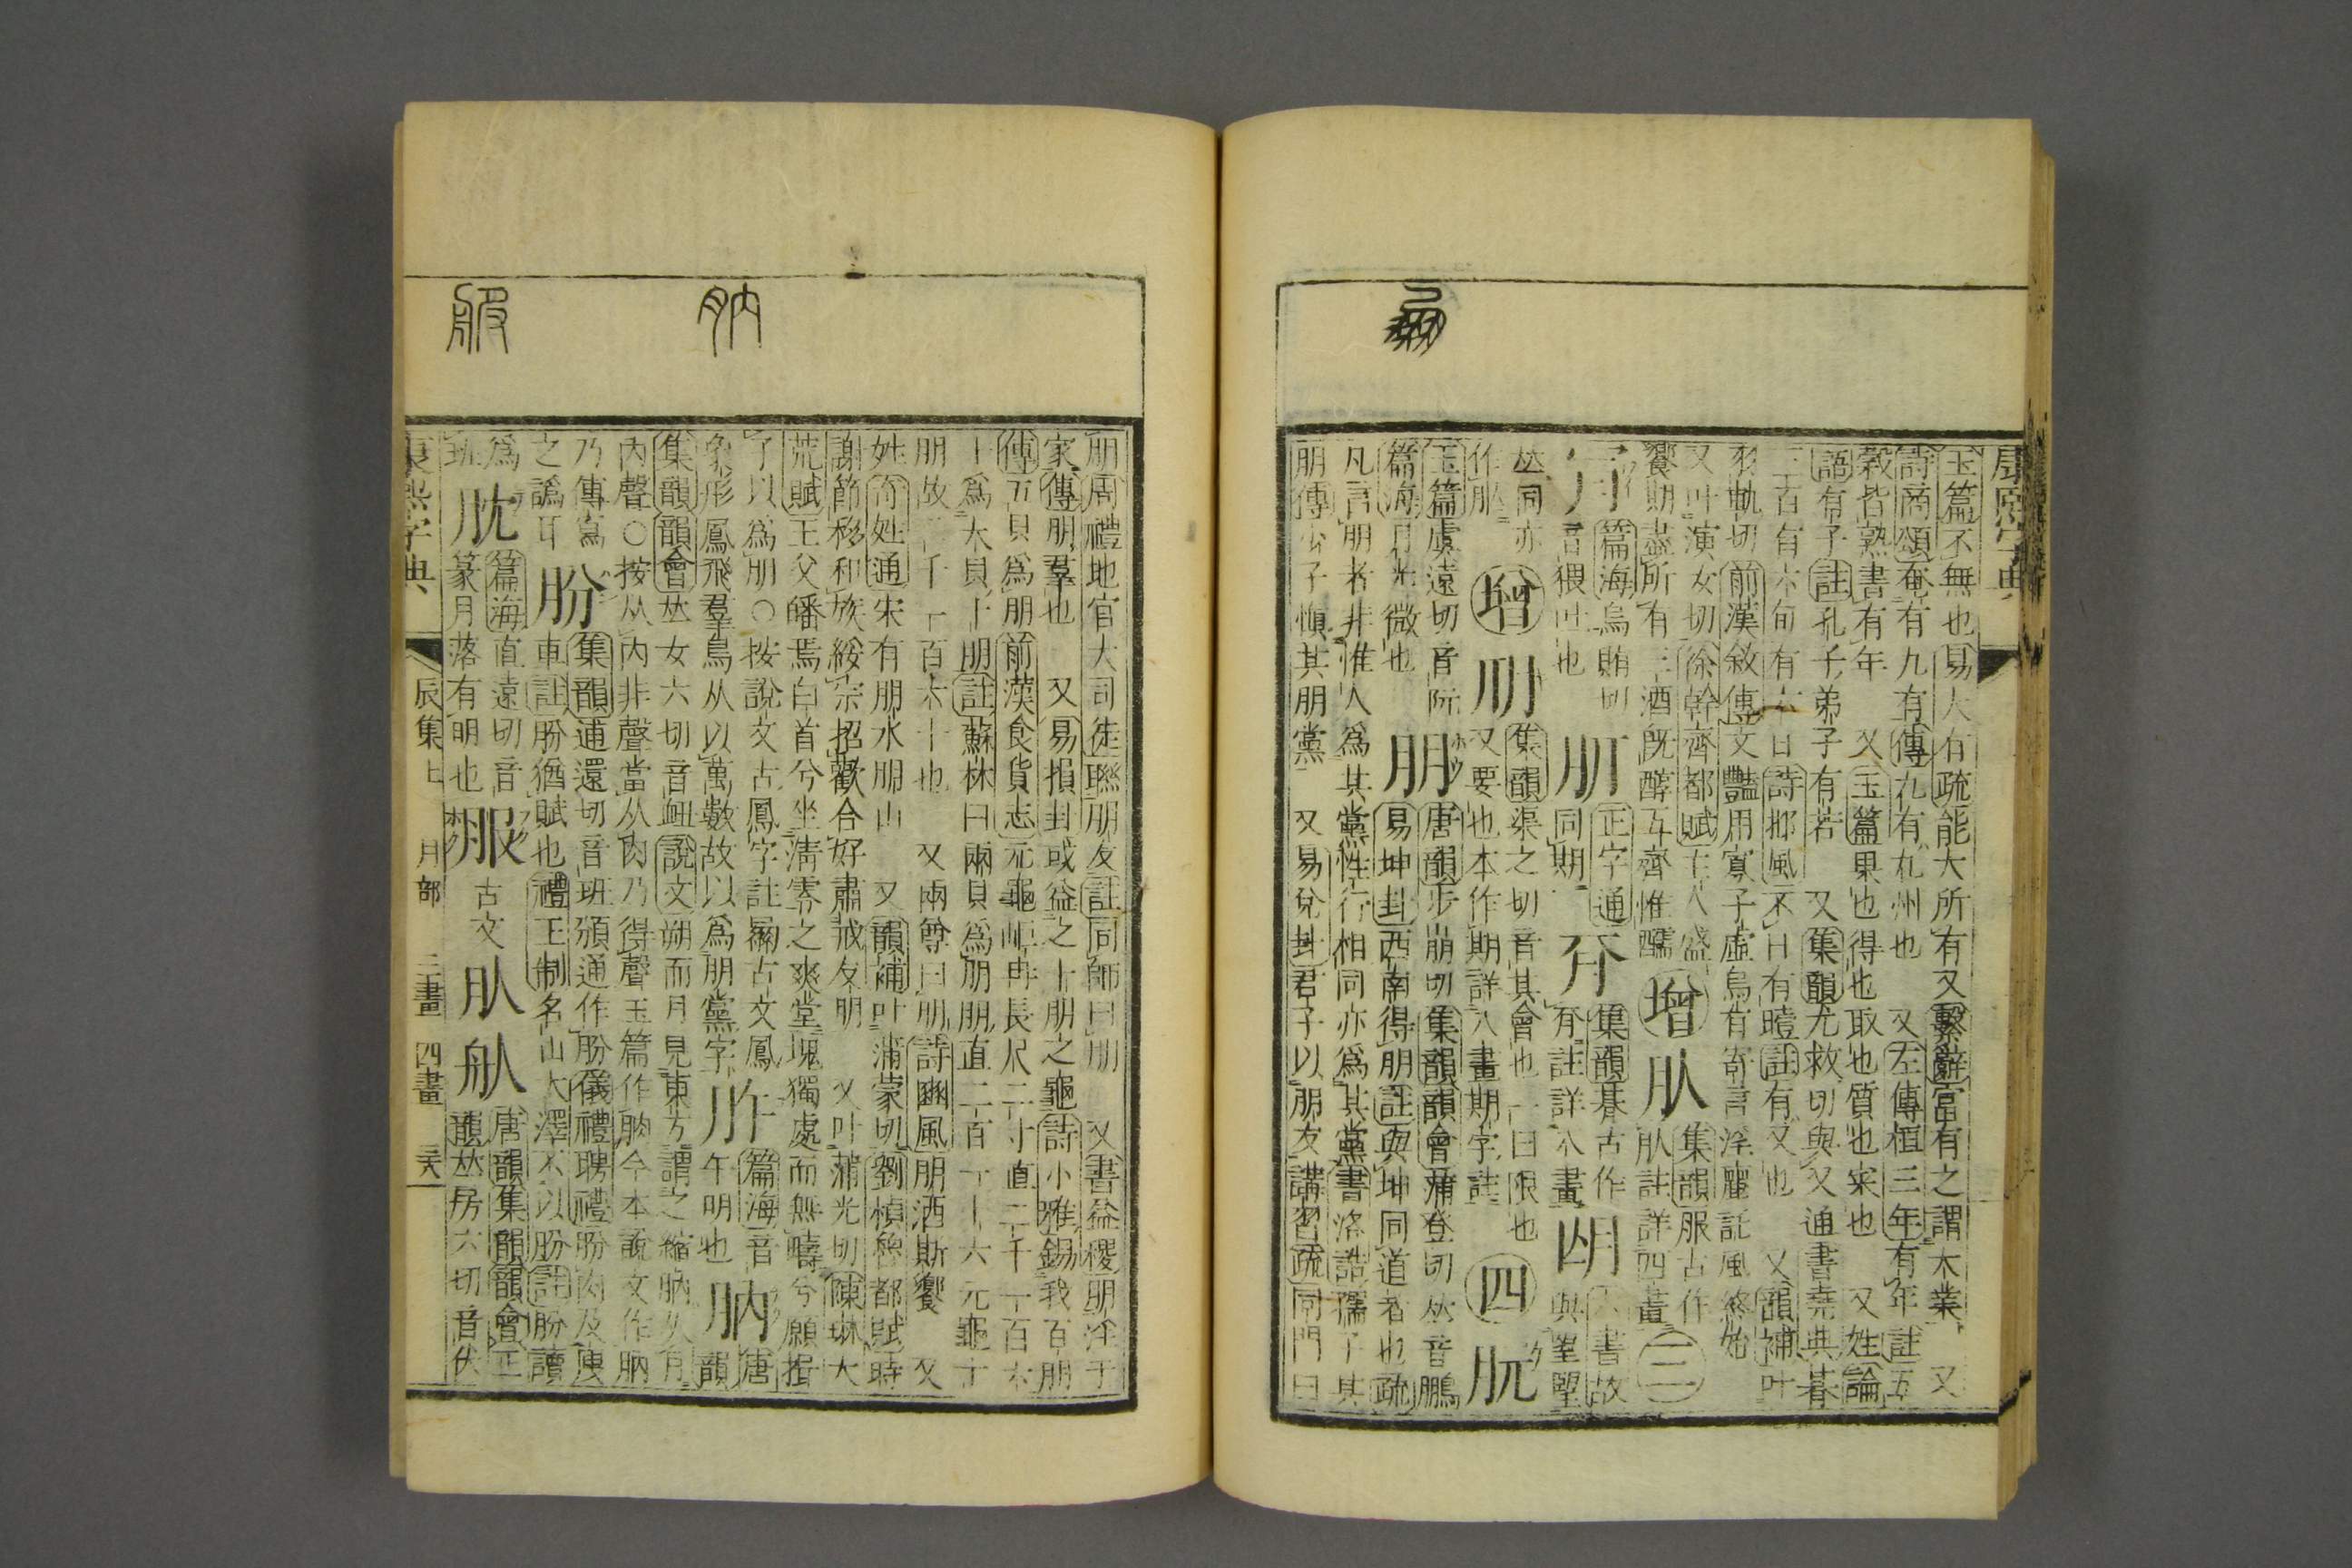 玉篇不無也易大有疏能大所有又繫辭富有之謂大業 又
詩商頌奄有九有傳九有九州也 又左傳桓三年有年註五
穀皆熟書有年 又玉篇果也得也取也質也寀也 又姓論
語有子註孔子弟子有若 又集韻尤救切與又通書堯典朞
三百有六旬有六日詩邶風不日有曀註有又也 又韻補叶
羽軌切前漢敘傳文豔用寡子虛烏有寄言淫麗託風終始
又叶演女切徐幹齊都賦主人盛
饗期盡所有三酒旣醇五齊惟醹
增
肌
集韻服古作
肌註詳四畫
三
篇海烏賄切
音猥吐也
正字通
同期
集韻朞古作
註詳八畫
書故
與朢望
𠀤同亦
作
增
集韻渠之切音其會也一曰限也
又要也本作期詳八畫期字註
四
朊
玉篇虞遠切音阮
篇海月光微也
朋
唐韻步崩切集韻韻會蒲登切𠀤音鵬
易坤卦西南得朋註與坤同道者也疏
凡言朋者非惟人爲其黨性行相同亦爲其黨書洛誥孺子其
朋傳少子愼其朋黨 又易兌卦君子以朋友講習疏同門曰
朋周禮地官大司徒聯朋友註同師曰朋 又書益稷朋淫于
家傳朋羣也 又易損卦或益之十朋之龜詩小雅錫我百朋
傳五貝爲朋前漢食貨志元龜岠冉長尺二寸直二千一百六
十爲大貝十朋註蘇林曰兩貝爲朋朋直二百一十六元龜十
朋故二千一百六十也 又兩尊曰朋詩豳風朋酒斯饗 又
姓奇姓通宋有朋水朋山 又韻補叶蒲蒙切劉楨魯都賦時
謝節移和族綏宗招歡合好肅戒友朋 又叶蒲光切陳琳大
荒賦王父皤焉白首兮坐淸零之爽堂塊獨處而無疇兮願揖
子以爲朋○按說文古鳳字註古文鳳
象形鳳飛羣鳥从以萬數故以爲朋黨字
篇海音
午明也
肭
唐
韻
集韻韻會𠀤女六切音衄說文朔而月見東方謂之縮肭从有
內聲○按从內非聲當从肉乃得聲玉篇作朒今本說文作朒
乃傳寫
之譌耳
朌
集韻逋還切音班頒通作朌儀禮聘禮朌肉及廋
車註朌猶賦也禮王制名山大澤不以朌註朌讀
爲
班
篇海直遠切音
篆月落有明也
服
古文
唐韻集韻韻會正
韻𠀤房六切音伏
康熙字典 辰集上 月部 三畫 四畫